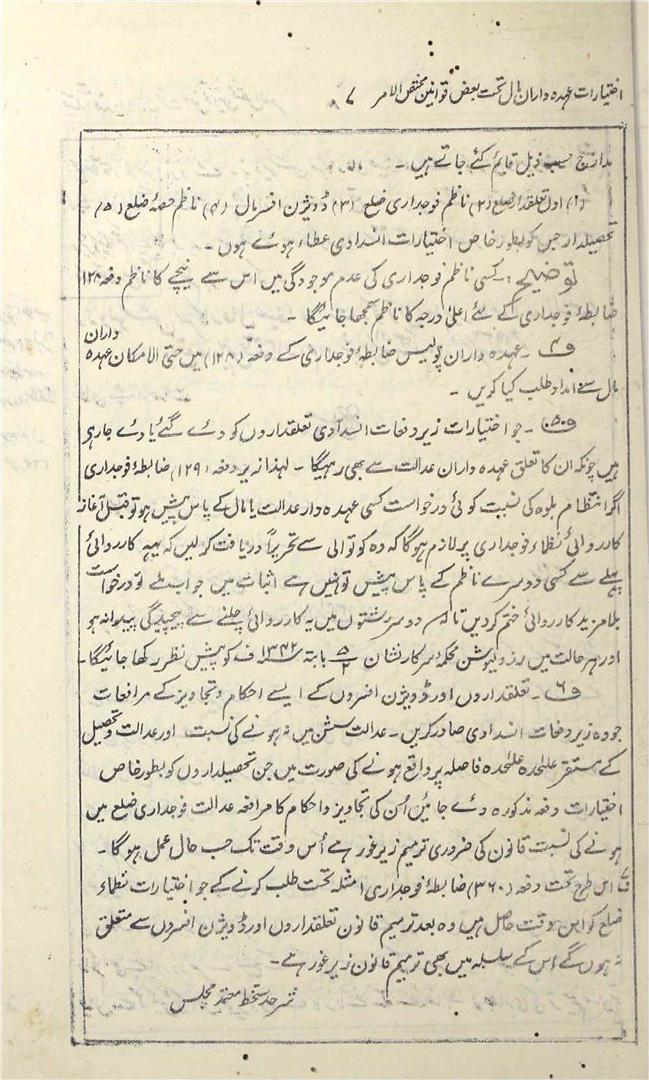 اختیارات عہدہ داران مال تحت بعض قوانین مختص الامر ۷
مدارج حسب ذیل قایم کئے جاتے ہیں ۔
(۱) اول تعلقدار ضلع (۲) ناظم فوجداری ضلع (۳) ڈویژن افسر مال (۴) ناظم حصۂ ضلع (۵)
تحصیلدار جس کو بطور خاص اختیارات انسدادی عطاء ہوئے ہوں ۔
توضیح :۔ کسی ناظم فوجداری کی عدم موجودگی میں اس سے نیچے کا ناظم دفعہ ۱۲۸
ضابطۂ فوجداری کے لئے اعلیٰ درجہ کا ناظم سمجھا جائیگا ۔
ف۴ ۔ عہدہ داران پولیس ضابطۂ فوجداری کے دفعہ (۱۲۸) میں حتی الامکان عہدہ داران
مال سے امداد طلب کیا کریں ۔
ف۵ ۔ جو اختیارات زیر دفعات انسدادی تعلقداروں کو دئے گئے یا دئے جارہی
ہیں چونکہ ان کا تعلق عہدہ داران عدالت سے بھی رہیگا ۔ لہذا نہ بر دفعہ (۱۲۹) ضابطۂ فوجداری
اگر انتظام بلوہ کی نسبت کوئی درخواست کسی عہدہ دار عدالت یا مال کے پاس پیش ہو تو قبل آغاز
کارروائی نظماء فوجداری پر لازم ہوگا کہ وہ کوتوالی سے تحریراً دریافت کرلیں کہ یہہ کارروائی
پہلے سے کسی دوسرے ناظم کے پاس پیش تو نہیں ہے اثبات میں جواب ملے تو درخواست
بلا مزید کارروائی ختم کردیں تاکہ دوسرے رشتوں میں یہ کارروائی چلنے سے پیچیدگی پیدا نہ ہو
اور ہر حالت میں رزولیوشن محکمۂ سرکار نشان ۵/۲ بابتہ ۱۳۴۲ ف کو پیش نظر رکھا جائیگا ۔
ف۶ ۔ تعلقداروں اور ڈویژن افسروں کے ایسے احکام و تجاویز کے مرافعات
جو وہ زیر دفعات انسدادی صادر کریں ۔ عدالت سشن میں نہ ہونے کی نسبت اور عدالت و تحصیل
کے مستقر علٰحدہ علٰحدہ فاصلہ پر واقع ہونے کی صورت میں جن تحصیلداروں کو بطور خاص
اختیارات دفعہ مذکورہ دئے جائیں اُن کی تجاویز و احکام کا مرافعہ عدالت فوجداری ضلع میں
ہونے کی نسبت قانون کی ضروری ترمیم زیر غور ہے اُس وقت تک حسب حال عمل ہوگا ۔
ف۷ اس طرح تحت دفعہ (۳۶۰) ضابطۂ فوجداری امثلہ تحت طلب کرنے کے جو اختیارات نظماء
ضلع کو اس وقت حاصل ہیں وہ بعد ترمیم قانون تعلقداروں اور ڈویژن افسروں سے متعلق
نہ ہوں گے اس کے سلسلہ میں بھی ترمیم قانون زیر غور ہے ۔
شرحد ستخط معتمد مجلس